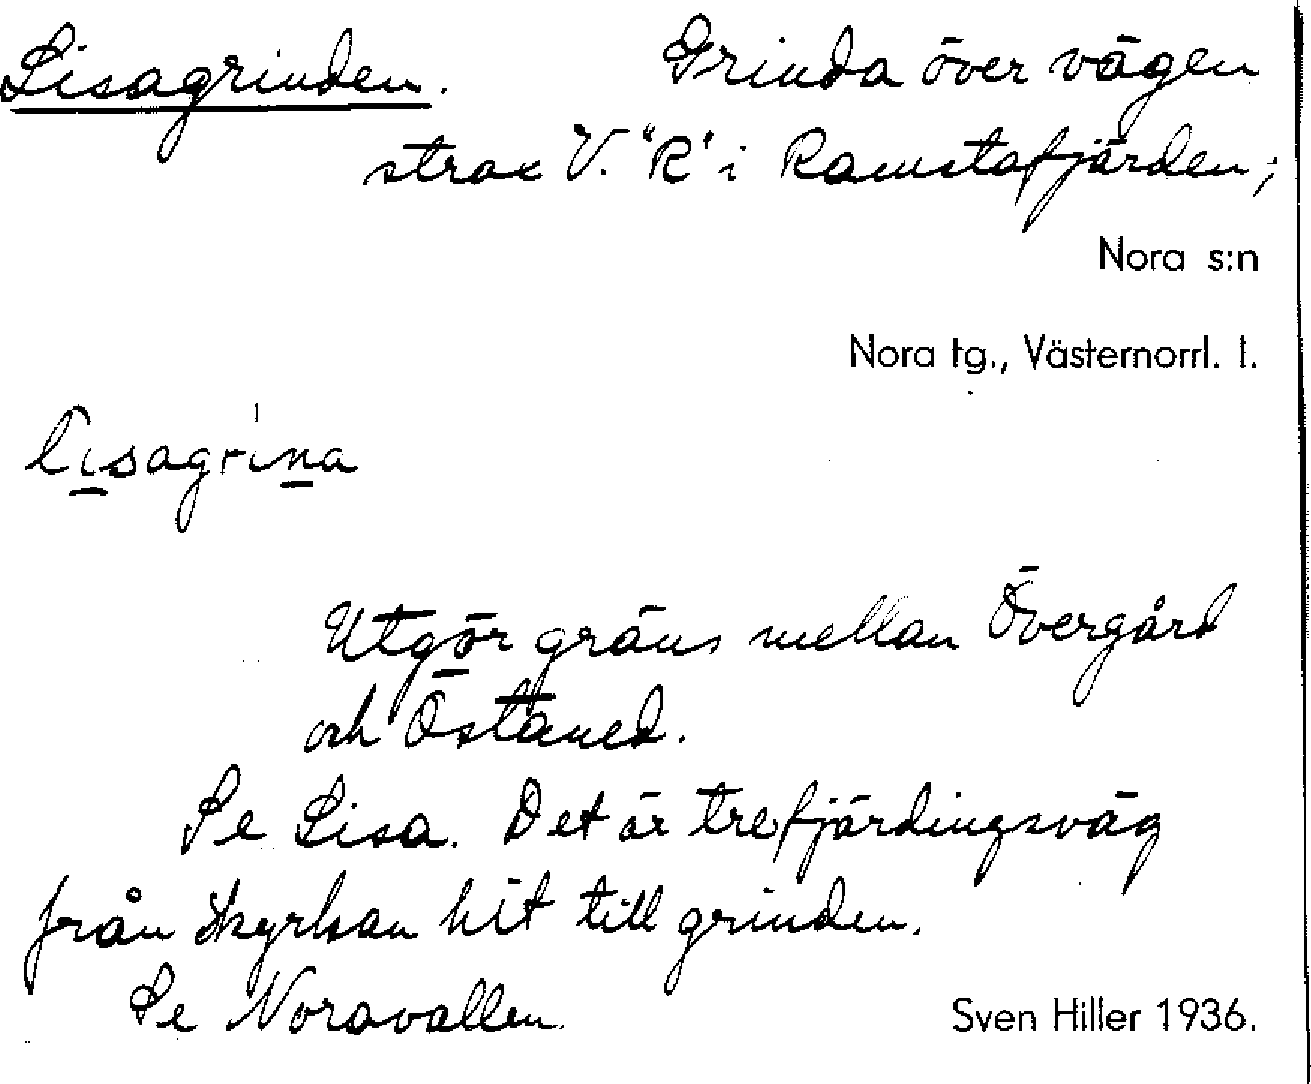 Lisagrinden. Grinda över vägen
strax V. "R" i Ramstafjärden;
Nora s:n
Nora tg., Västernorrl. l.
lisagrina
Utgör gräns mellan Övergård
och Östaned.
Se Lisa. Det är trefjärdingsväg
från kyrkan hit till grinden.
Se Noravallen
Sven Hiller 1936.